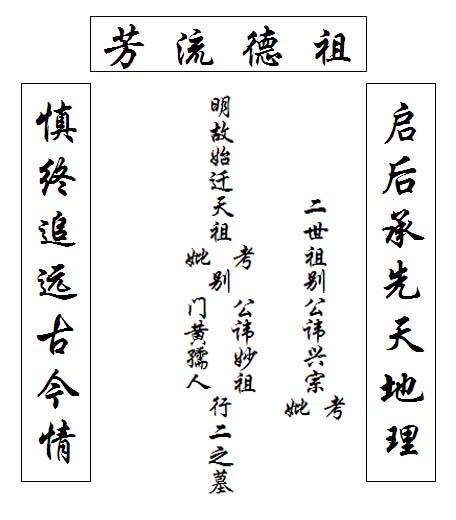 祖德流芳
启后承先天地理
二世祖别公讳兴宗
考妣
明故始迁天祖
考妣
别
公讳妙祖
门黄孺人
行二之墓
慎终追远古今情